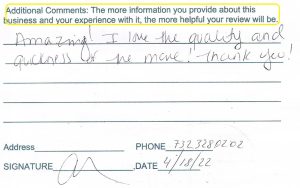 Additional Comments: The more information you provide about this
business and your experience with it, the more helpful your review will be.
Amazing! I love the quality and
quickness of the move! Thank you!
Address PHONE 7323280202
SIGNATURE ,DATE 4/18/22